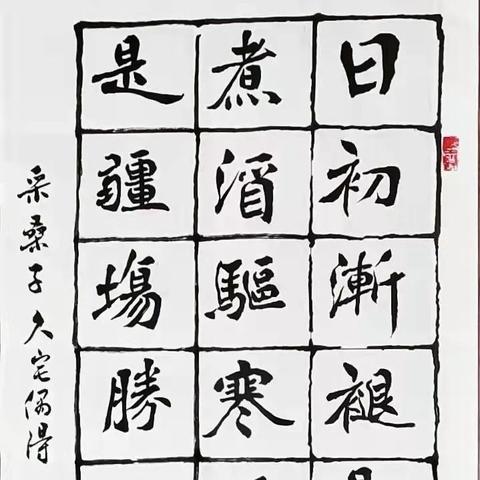 日初漸褪
煮酒驅寒
是疆場勝
采桑子 久宅偶得